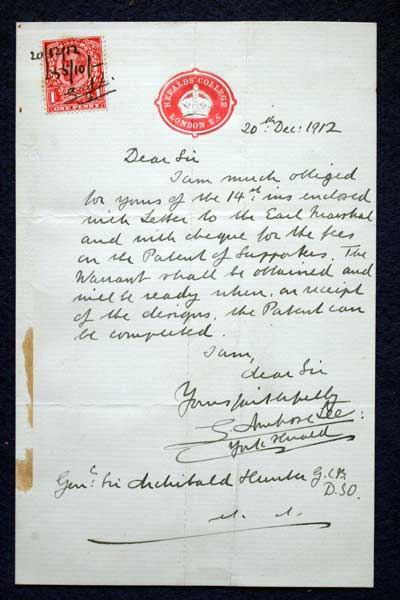 20/12/12
£55/10/-
1 ONE PENNY 1
HERALDS' COLLEGE
LONDON. E.C.
20th Dec: 1912
Dear Sir
I am much obliged
for yours of the 14th ins enclosed
with Letter to the Earl Marshal
and with cheque for the fees
on the Patent of Supporters. The
Warrant shall be obtained and
will be ready when, on receipt
of the designs, the Patent can
be completed.
I am,
dear Sir
Yours faithfully
G. Ambrose Lee:
York Herald
Genl Sir Archibald Hunter G.C.B.
D.SO.